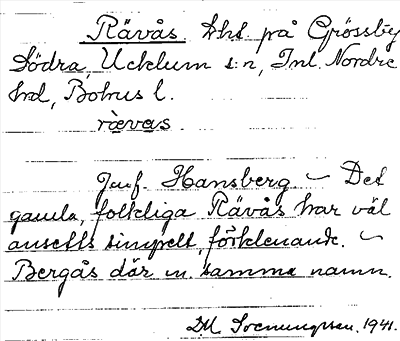 Rävås. Lht. på Grössby
Södra, Ucklum s:n, Inl. Nordre
hrd, Bohus l.
rævås.
Jmf. Hansberg – Det
gamla, folkliga Rävås har väl
ansetts simpelt, förklenande. –
Bergås där m. samma namn.
D.M. Soenungsen. 1941.